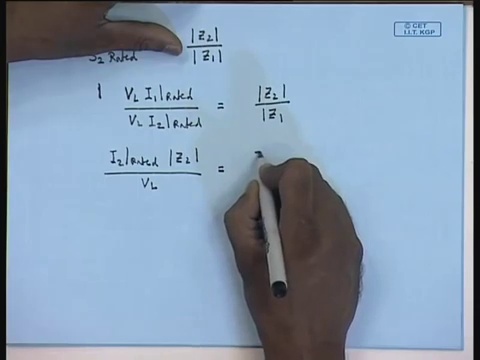 © CET
I.I.T. KGP
S₂ Rated |Z₂| / |Z₁|
V_L I₁|Rated / V_L I₂|Rated = |Z₂| / |Z₁
I₂|Rated |Z₂| / V_L =